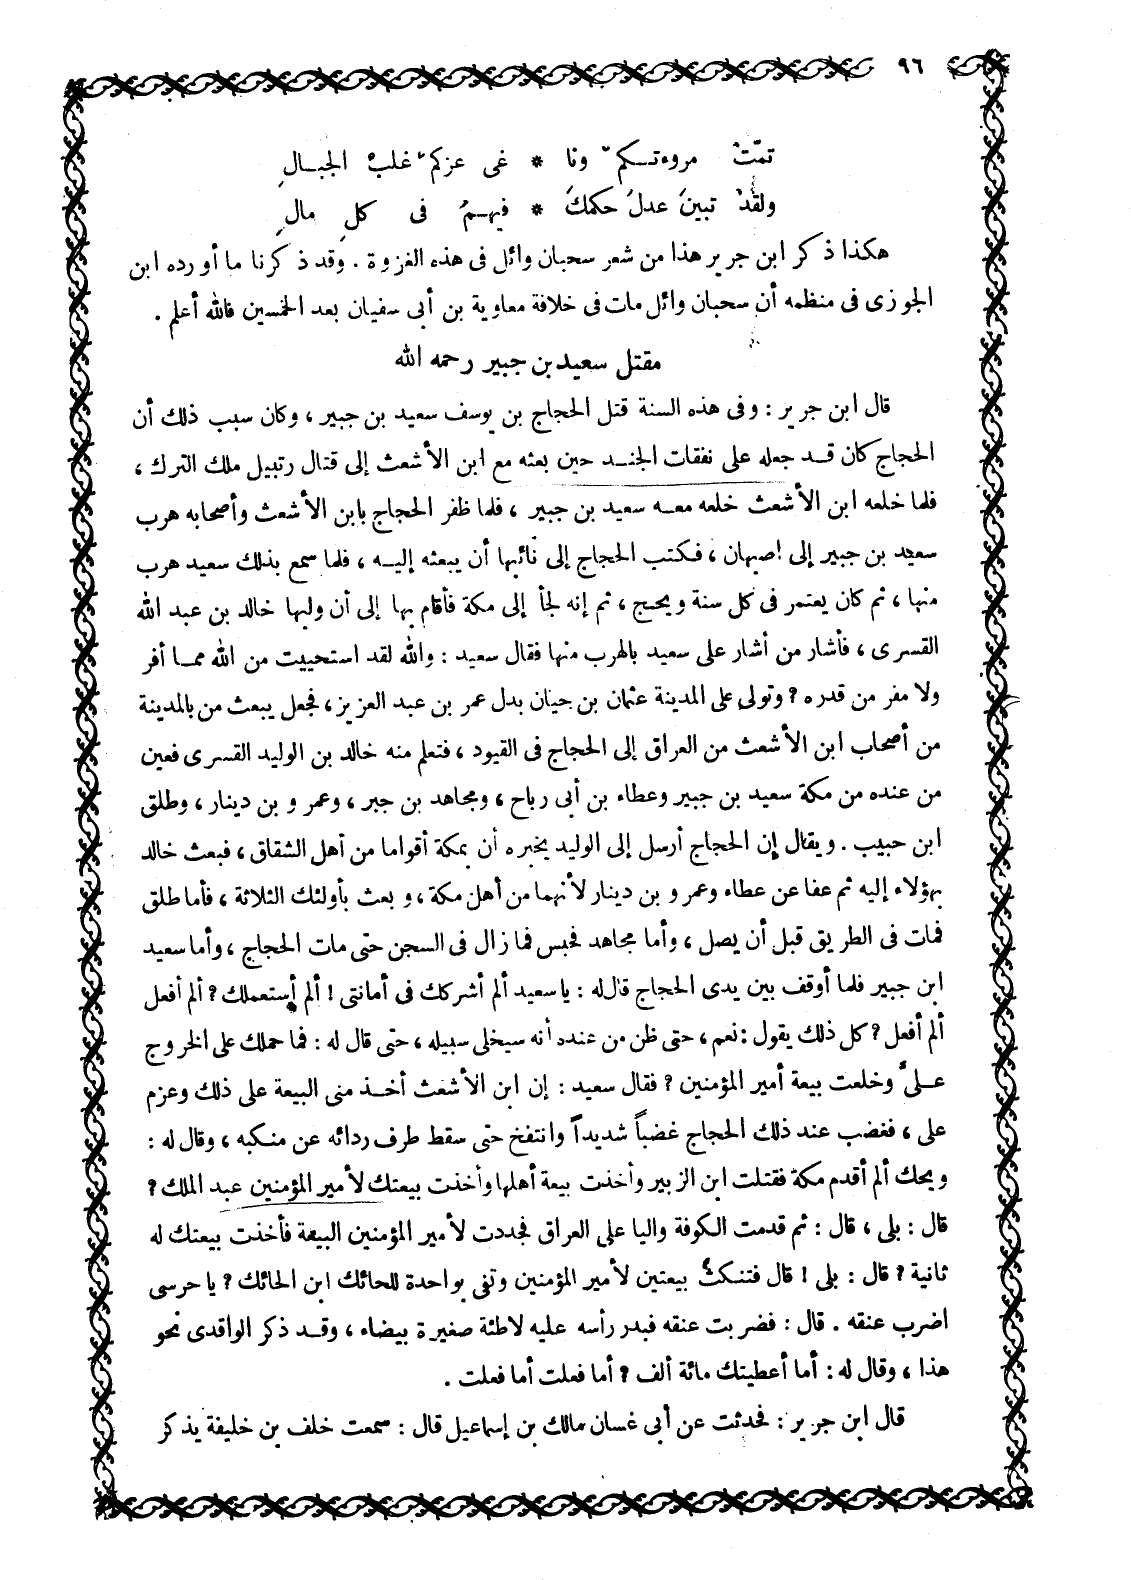 ٩٦
تمّتْ مروءتـكمْ ونا * غى عزكمْ غلبْ الجبـالِ
ولقدْ تبينَ عدلُ حكمكَ * فيهـمُ فى كلِ مالِ
هكذا ذكر ابن جرير هذا من شعر سحبان وائل فى هذه الغزوة . وقد ذكرنا ما أورده ابن
الجوزى فى منظمه أن سحبان وائل مات فى خلافة معاوية بن أبى سفيان بعد الخمسين فالله أعلم .
مقتل سعيد بن جبير رحمه الله
قال ابن جرير : وفى هذه السنة قتل الحجاج بن يوسف سعيد بن جبير ، وكان سبب ذلك أن
الحجاج كان قـد جعله على نفقات الجنـد حين بعثه مع ابن الأشعث إلى قتال رتبيل ملك الترك ،
فلما خلعه ابن الأشعث خلعه معـه سعيد بن جبير ، فلما ظفر الحجاج بابن الأشعث وأصحابه هرب
سعيد بن جبير إلى اصبهان ، فـكتب الحجاج إلى نائبها أن يبعثه إليـه ، فلما سمع بذلك سعيد هرب
منها ، ثم كان يعتمر فى كل سنة ويحـج ، ثم إنه لجأ إلى مكة فأقام بها إلى أن وليها خالد بن عبد الله
القسرى ، فأشار من أشار على سعيد بالهرب منها فقال سعيد : والله لقد استحييت من الله ممـا أفر
ولا مفر من قدره ؟ وتولى على المدينة عثمان بن حيان بدل عمر بن عبد العزيز ، فجعل يبعث من بالمدينة
من أصحاب ابن الأشعث من العراق إلى الحجاج فى القيود ، فتعلم منه خالد بن الوليد القسرى فعين
من عنده من مكة سعيد بن جبير وعطاء بن أبى رباح ، ومجاهد بن جبر ، وعمرو بن دينار ، وطلق
ابن حبيب . ويقال إن الحجاج أرسل إلى الوليد يخبره أن بمكة أقواما من أهل الشقاق ، فبعث خالد
بهؤلاء إليه ثم عفا عن عطاء وعمرو بن دينار لأنهما من أهل مكة ، وبعث بأولئك الثلاثة ، فأما طلق
فمات فى الطريق قبل أن يصل ، وأما مجاهد فحبس فما زال فى السجن حتى مات الحجاج ، وأما سعيد
ابن جبير فلما أوقف بين يدى الحجاج قال له : ياسعيد ألم أشركك فى أمانتى ! ألم أستعملك ؟ ألم أفعل
ألم أفعل ؟ كل ذلك يقول : نعم ، حتى ظن من عنده أنه سيخلى سبيله ، حتى قال له : فما حملك على الخروج
عـلىّ وخلعت بيعة أمير المؤمنين ؟ فقال سعيد : إن ابن الأشعث أخـذ منى البيعة على ذلك وعزم
على ، فغضب عند ذلك الحجاج غضباً شديداً وانتفخ حتى سقط طرف ردائه عن منـكبه ، وقال له :
ويحك ألم أقدم مكة فقتلت ابن الزبير وأخذت بيعة أهلها وأخذت بيعتك لأمير المؤمنين عبد الملك ؟
قال : بلى ، قال : ثم قدمت الكوفة واليا على العراق فجددت لأمير المؤمنين البيعة فأخذت بيعتك له
ثانية ؟ قال : بلى ! قال فتنكث بيعتين لأمير المؤمنين وتفى بواحدة للحائك ابن الحائك ؟ يا حرسى
اضرب عنقه . قال : فضربت عنقه فبدر رأسه عليه لاطئة صغيرة بيضاء ، وقـد ذكر الواقدى نحو
هذا ، وقال له : أما أعطيتك مائة ألف ؟ أما فعلت أما فعلت .
قال ابن جرير : فحدثت عن أبى غسان مالك بن إسماعيل قال : سمعت خلف بن خليفة يذكر